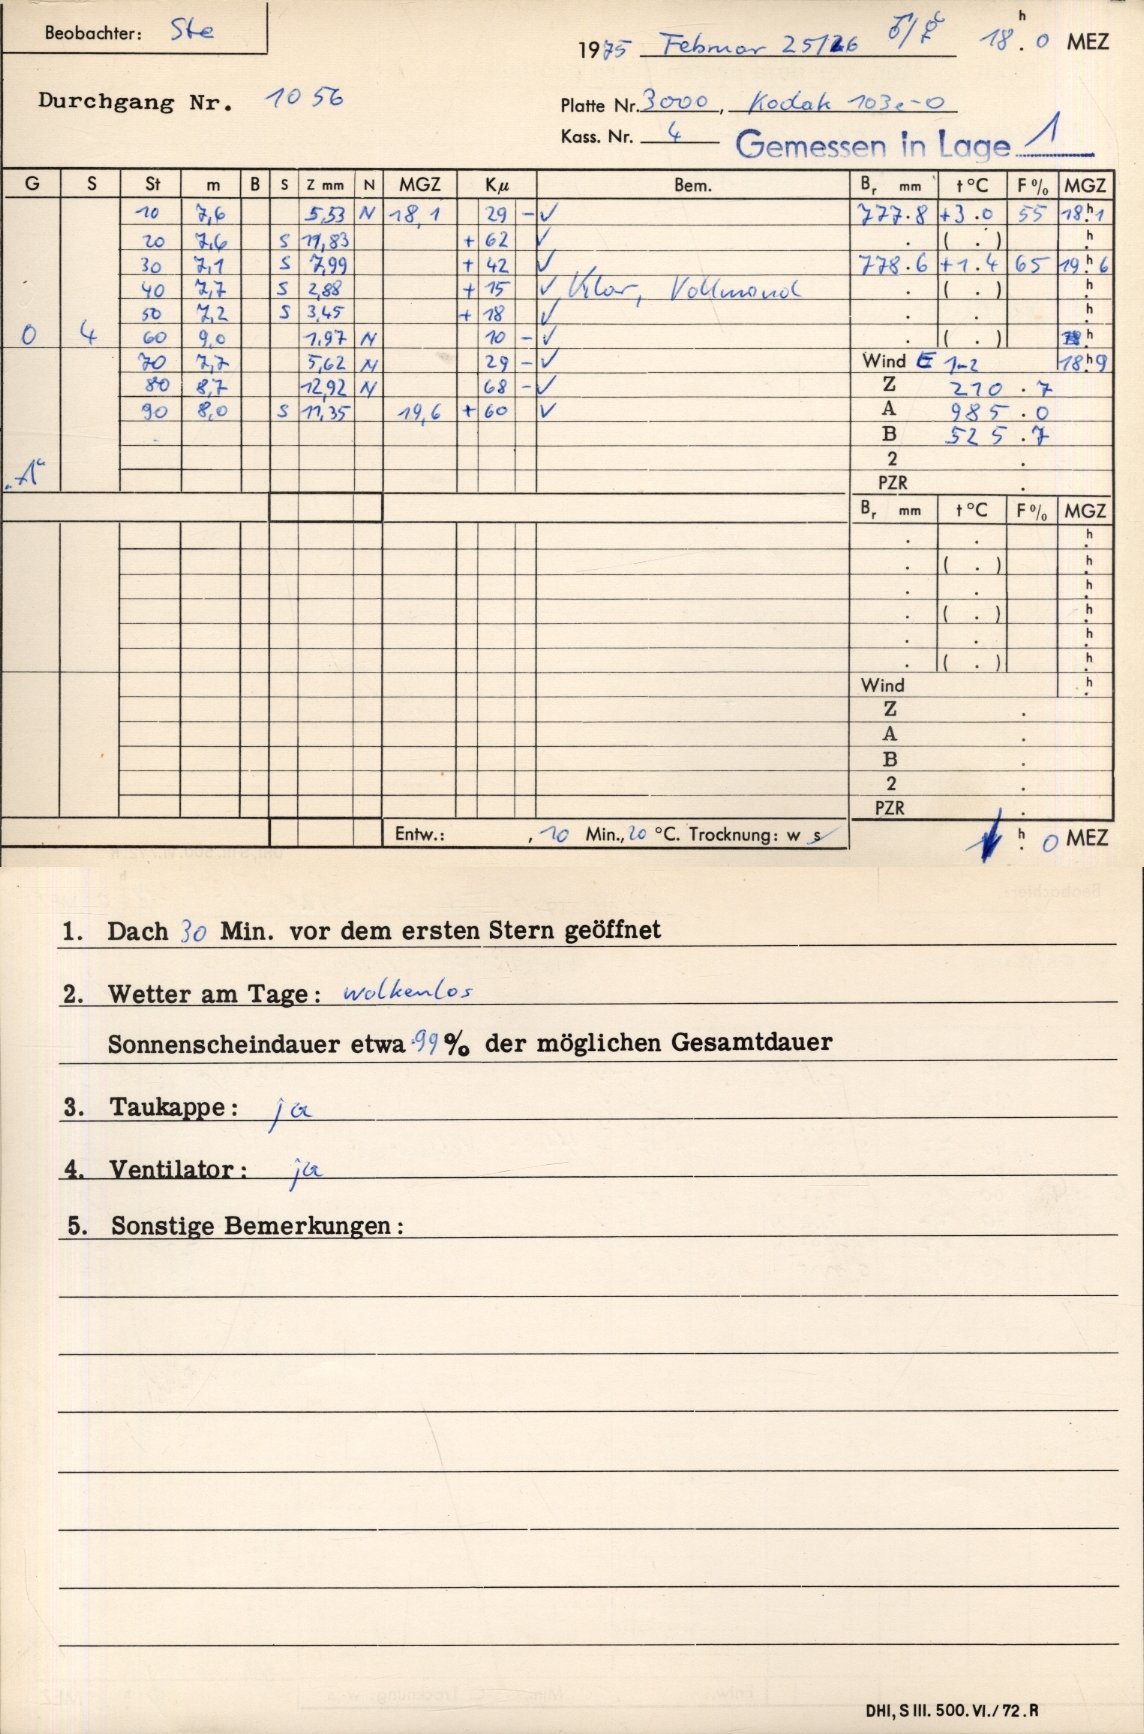 Beobachter: Ste
1975 Februar 25/26 ♂/☿ 18.h0 MEZ
Durchgang Nr. 1056
Platte Nr. 3000, Kodak 103a-O
Kass. Nr. 4 Gemessen in Lage 1
G S St m B S Z mm N MGZ Kμ Bem. Br mm t °C F % MGZ
10 7,6 5,53 N 18,1 29 - ✓ 777.8 +3.0 55 18.h1
20 7,6 S 11,83 + 62 ✓ . ( . ) .h
30 7,1 S 7,99 + 42 ✓ 778.6 +1.4 65 19.h6
40 7,7 S 2,88 + 15 ✓ Klar, Vollmond . ( . ) .h
50 7,2 S 3,45 + 18 ✓ . . .h
0 4 60 9,0 1,97 N 10 - ✓ . ( . ) h
70 7,7 5,62 N 29 - ✓ Wind E 1-2 18.h9
80 8,7 12,92 N 68 - ✓ Z 210.7
90 8,0 S 11,35 19,6 + 60 ✓ A 985.0
B 525.7
„A“ 2 .
PZR .
Br mm t °C F % MGZ
. . .h
. ( . ) .h
. . .h
. ( . ) .h
. . .h
. ( . ) .h
Wind .h
Z .
A .
B .
2 .
PZR .
Entw.: , 10 Min., 20 °C. Trocknung: w s h. 0 MEZ
1. Dach 30 Min. vor dem ersten Stern geöffnet
2. Wetter am Tage: wolkenlos
Sonnenscheindauer etwa 99 % der möglichen Gesamtdauer
3. Taukappe: ja
4. Ventilator: ja
5. Sonstige Bemerkungen:
DHI, S III. 500. VI./72. R